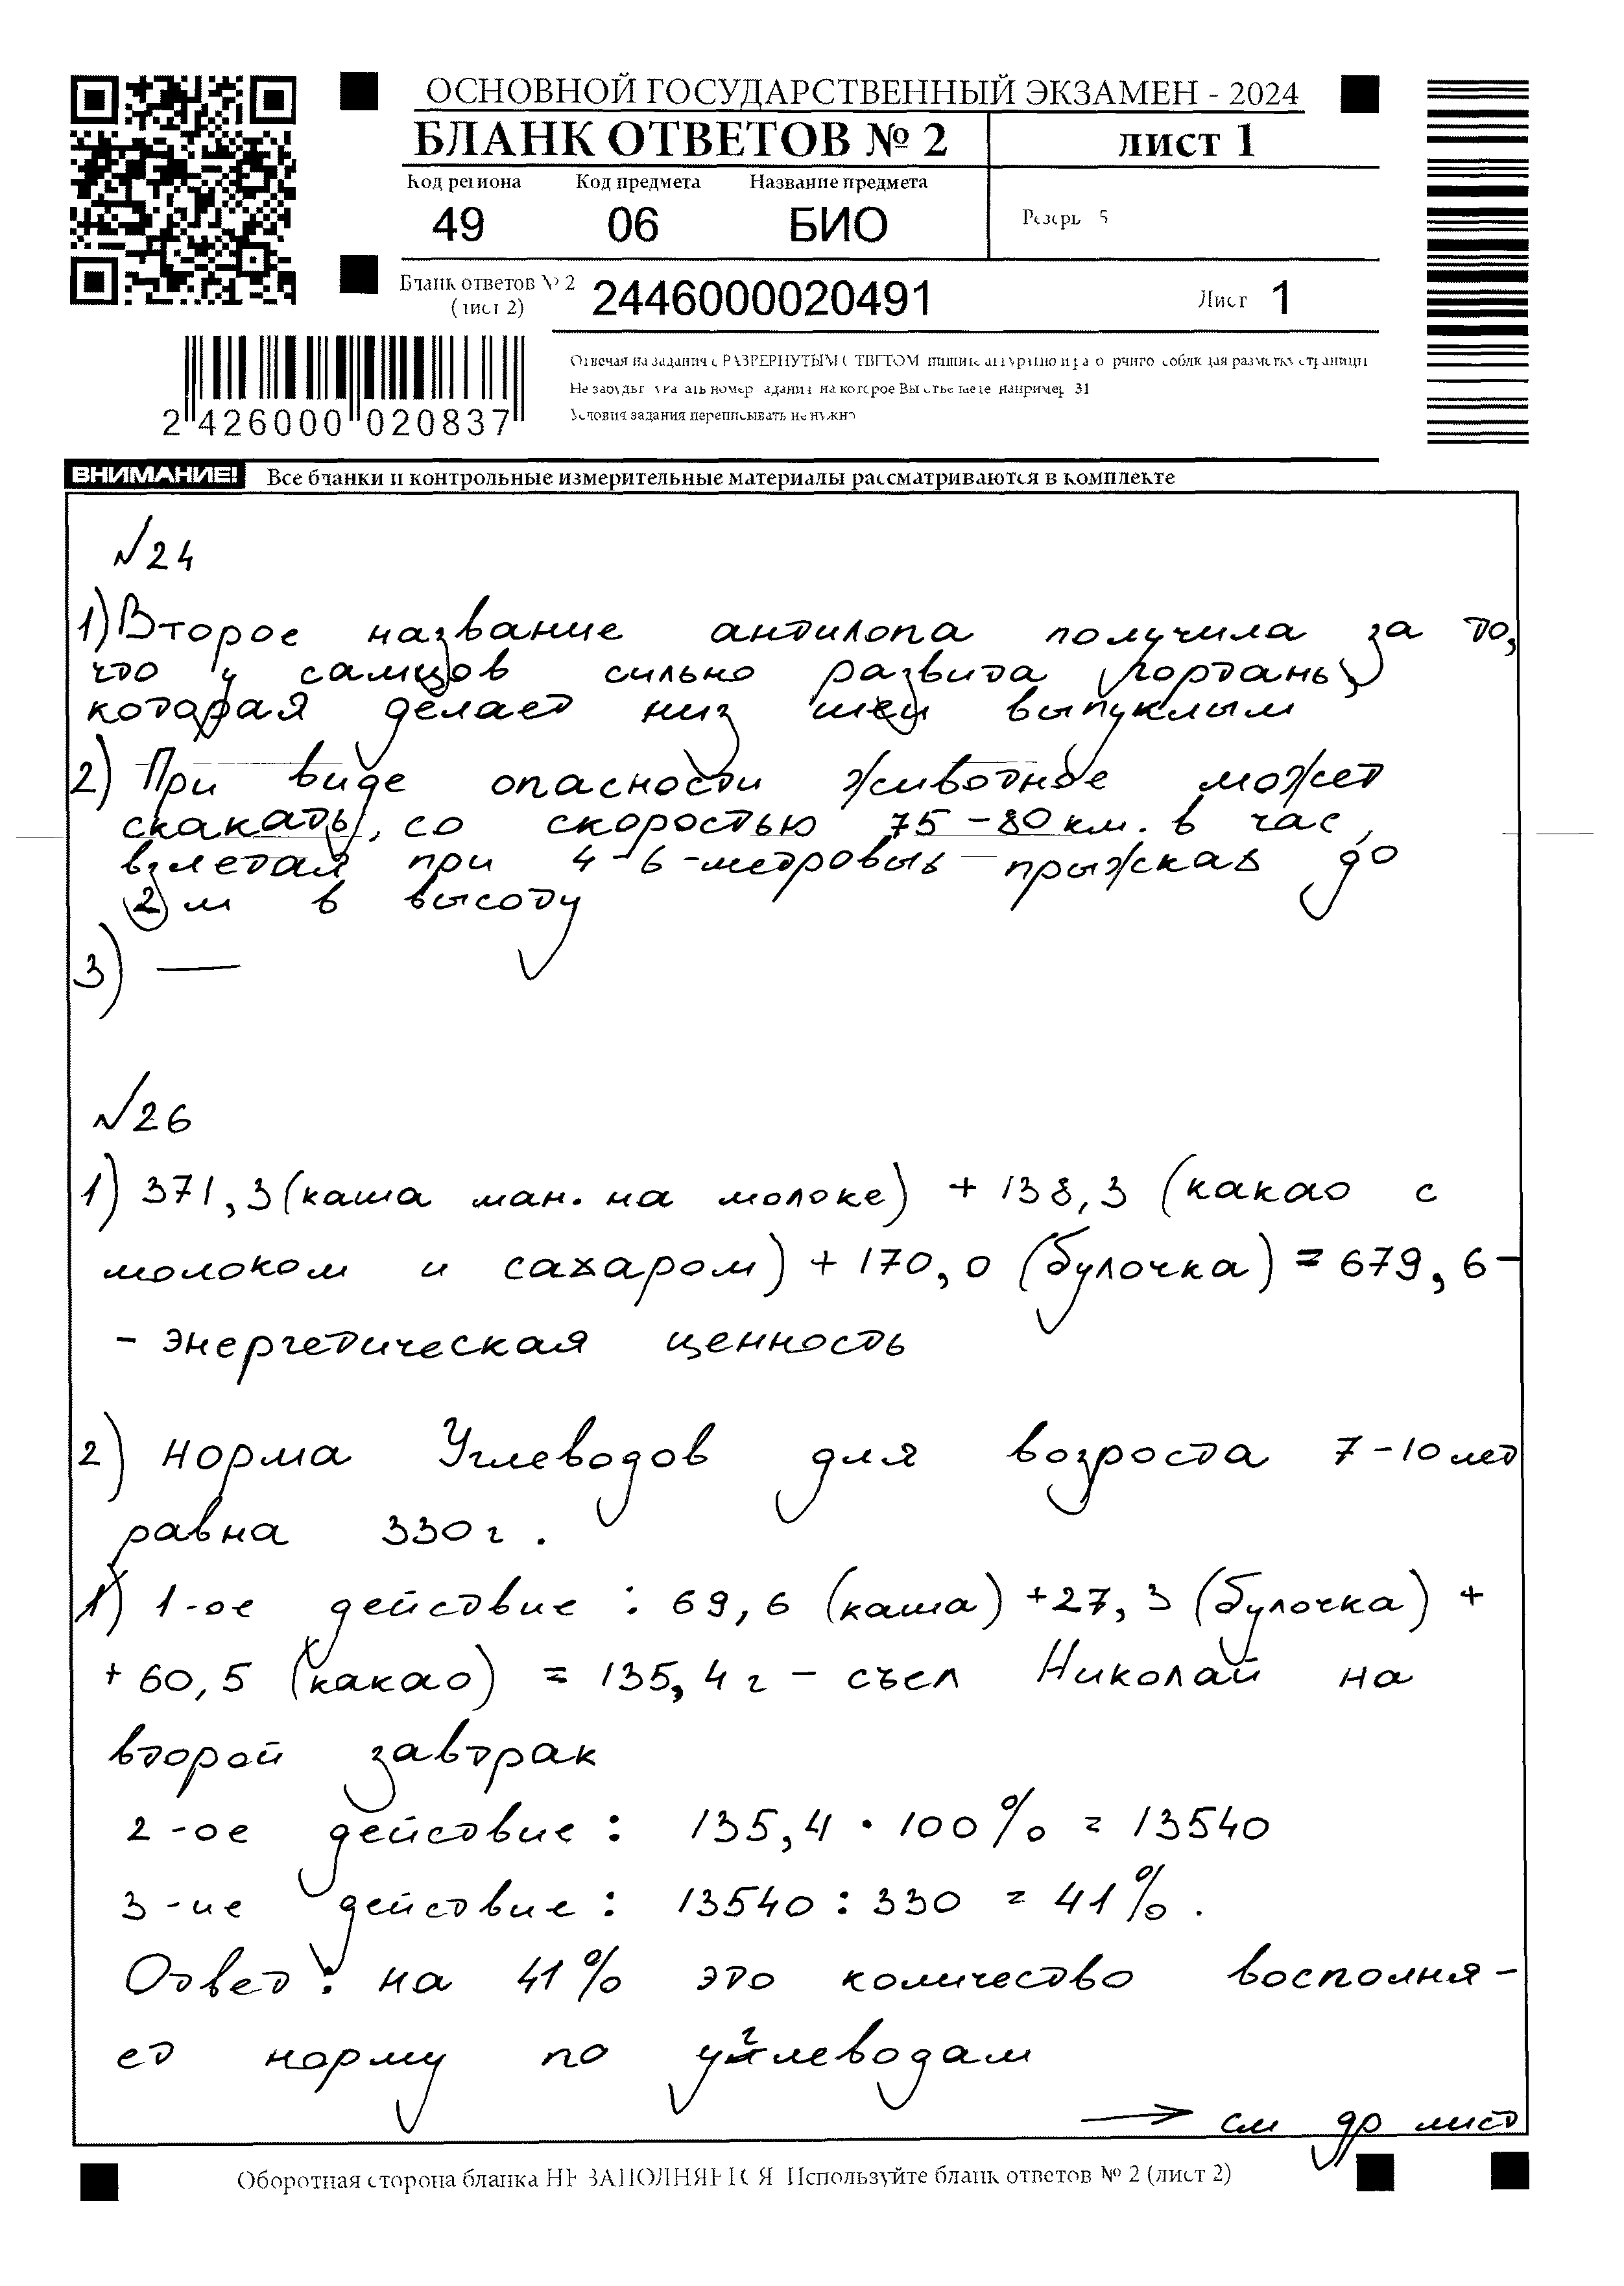 ОСНОВНОЙ ГОСУДАРСТВЕННЫЙ ЭКЗАМЕН - 2024
БЛАНК ОТВЕТОВ № 2
лист 1
Код региона
Код предмета
Название предмета
49
06
БИО
Резерв 5
Бланк ответов № 2
(лист 2)
2446000020491
Лист 1
2 426000 020837
Отвечая на задания с РАЗВЕРНУТЫМ ОТВЕТОМ пишите аккуратно и разборчиво соблюдая разметку страницы
Не забудьте указать номер задания на которое Вы отвечаете например 31
Условия задания переписывать не нужно
ВНИМАНИЕ!
Все бланки и контрольные измерительные материалы рассматриваются в комплекте
№24
1) Второе название антилопа получила за то,
что у самцов сильно развита гортань,
которая делает низ шеи выпуклым
2) При виде опасности животное может
скакать, со скоростью 75-80 км. в час,
взлетая при 4-6-метровых прыжках до
2 м в высоту
3) —
№26
1) 371,3 (каша ман. на молоке) + 138,3 (какао с
молоком и сахаром) + 170,0 (булочка) = 679,6 -
- энергетическая ценность
2) норма Углеводов для возроста 7-10 лет
равна 330 г.
1) 1-ое действие : 69,6 (каша) + 27,3 (булочка) +
+ 60,5 (какао) = 135,4 г - съел Николай на
второй завтрак
2-ое действие : 135,4 · 100% = 13540
3-ие действие : 13540 : 330 = 41%.
Ответ : на 41% это количество восполня-
ет норму по углеводам
→ см др лист
Оборотная сторона бланка НЕ ЗАПОЛНЯЕТСЯ Используйте бланк ответов № 2 (лист 2)